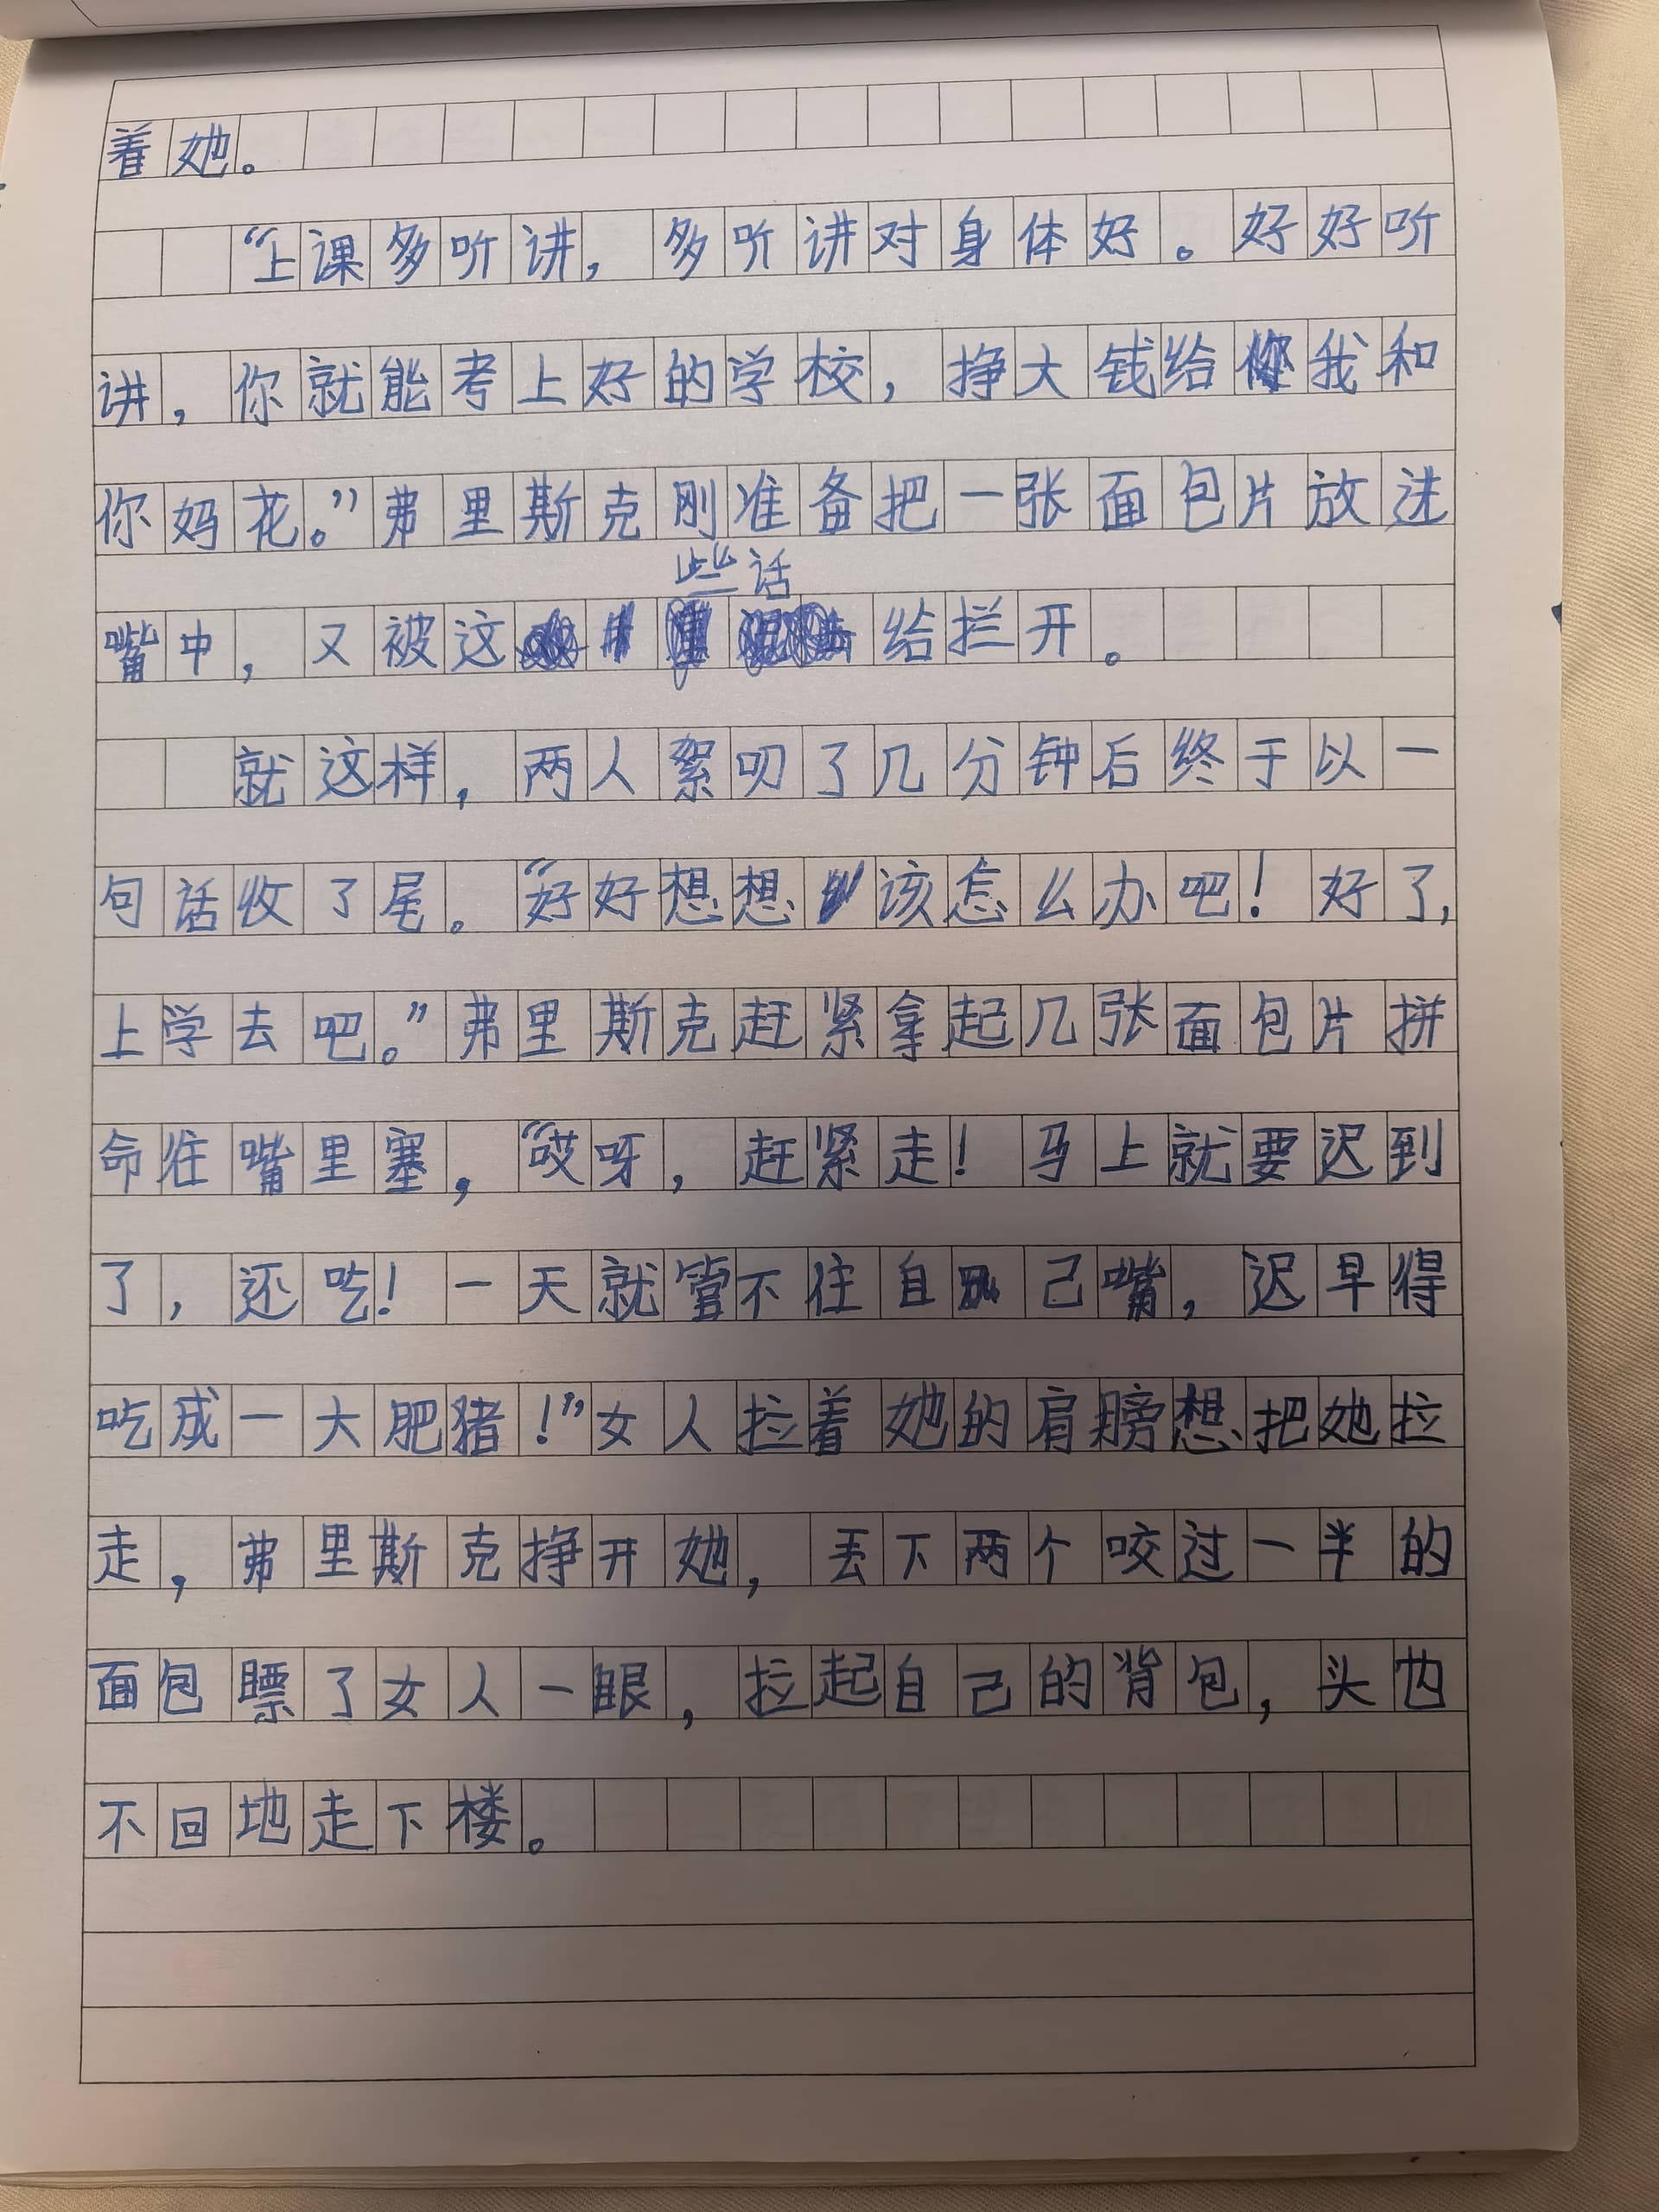 着她。
“上课多听讲，多听讲对身体好。好好听
讲，你就能考上好的学校，挣大钱给我和
你妈花。”弗里斯克刚准备把一张面包片放进
些话
嘴中，又被这给拦开。
就这样，两人絮叨了几分钟后终于以一
句话收了尾。“好好想想该怎么办吧！好了，
上学去吧。”弗里斯克赶紧拿起几张面包片拼
命往嘴里塞，“哎呀，赶紧走！马上就要迟到
了，还吃！一天就管不住自己嘴，迟早得
吃成一大肥猪！”女人拉着她的肩膀想把她拉
走，弗里斯克挣开她，丢下两个咬过一半的
面包瞟了女人一眼，拉起自己的背包，头也
不回地走下楼。